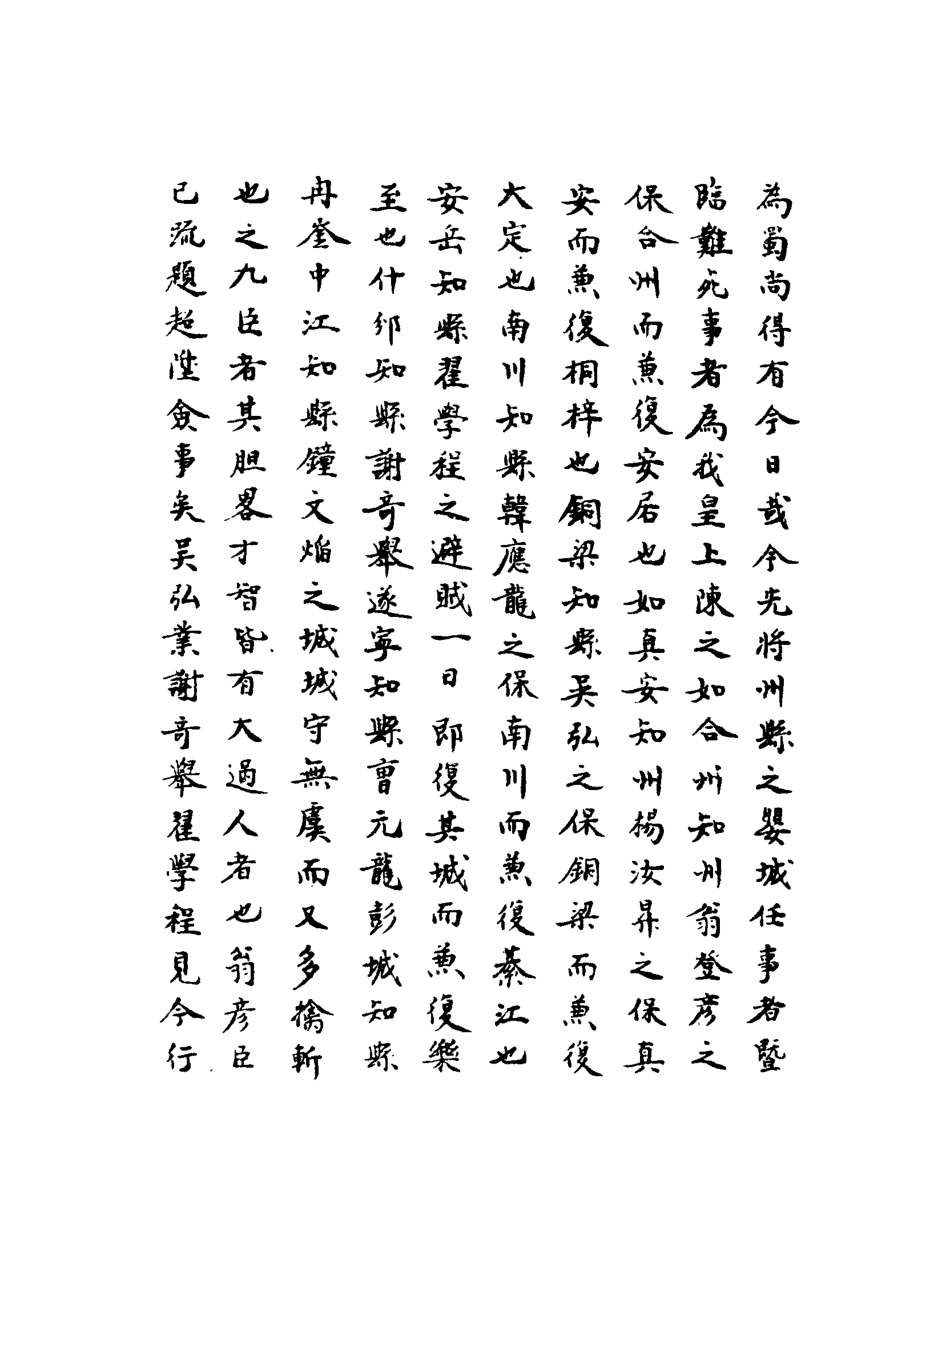 為蜀尚得有今日哉今先將州縣之嬰城任事者暨
臨難死事者為我皇上陳之如合州知州翁登彥之
保合州而兼復安居也如真安知州楊汝昇之保真
安而兼復桐梓也銅梁知縣吴弘之保銅梁而兼復
大定也南川知縣韓應龍之保南川而兼復綦江也
安岳知縣翟學程之避賊一日即復其城而兼復樂
至也什邡知縣謝奇舉遂寧知縣曺元龍彭城知縣
冉登中江知縣鐘文焰之城城守無虞而又多擒斬
也之九臣者其胆畧才智皆有大過人者也翁彥臣
已疏題超陞僉事矣吴弘業謝奇舉翟學程見今行